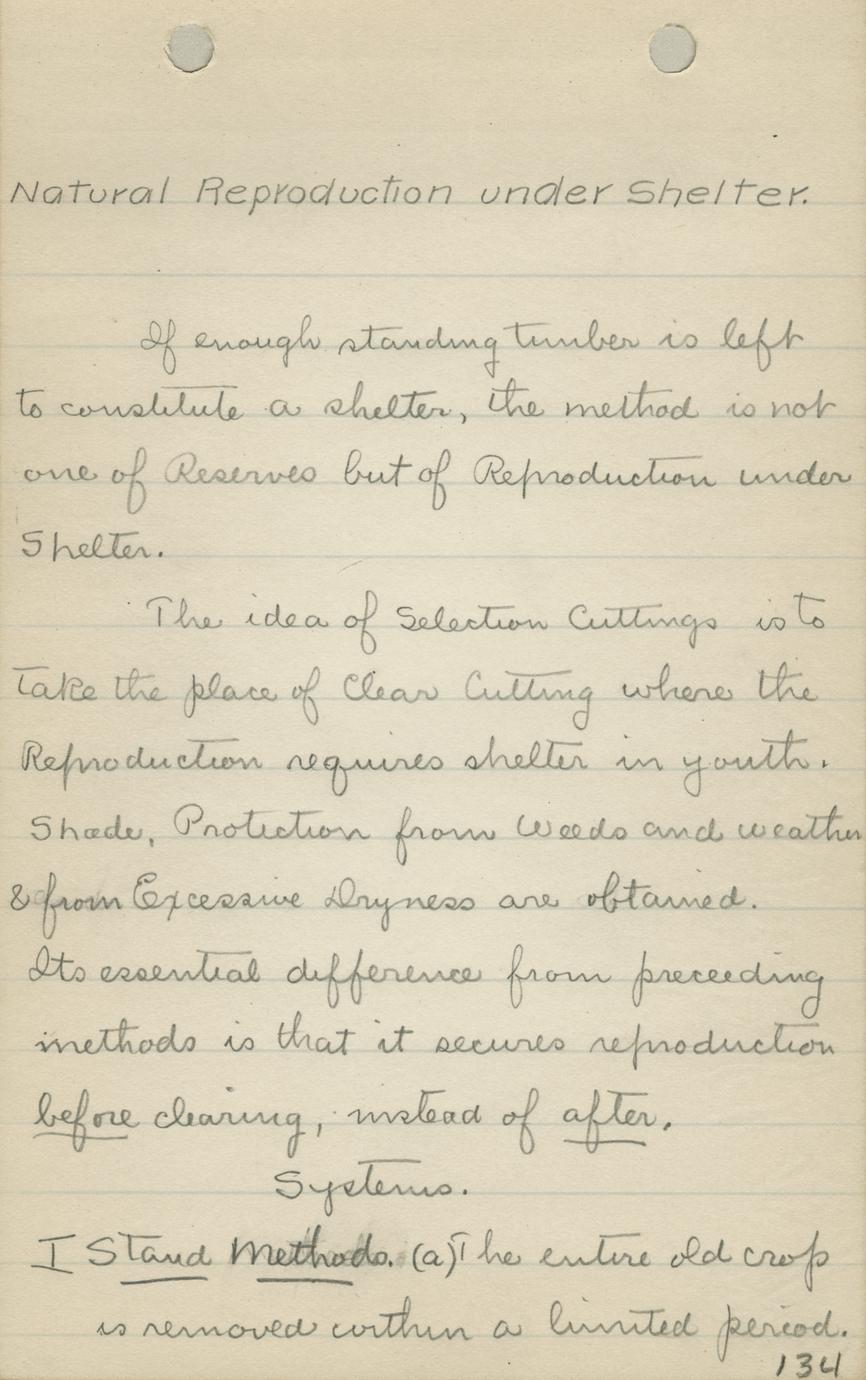 Natural Reproduction under Shelter.
If enough standing timber is left
to constitute a shelter, the method is not
one of Reserves but of Reproduction under
Shelter.
The idea of Selection Cuttings is to
take the place of Clear Cutting where the
Reproduction requires shelter in youth.
Shade, Protection from Weeds and weather
& from Excessive Dryness are obtained.
Its essential difference from preceeding
methods is that it secures reproduction
before clearing, instead of after.
Systems.
I Stand Methods. (a) The entire old crop
is removed within a limited period.
134